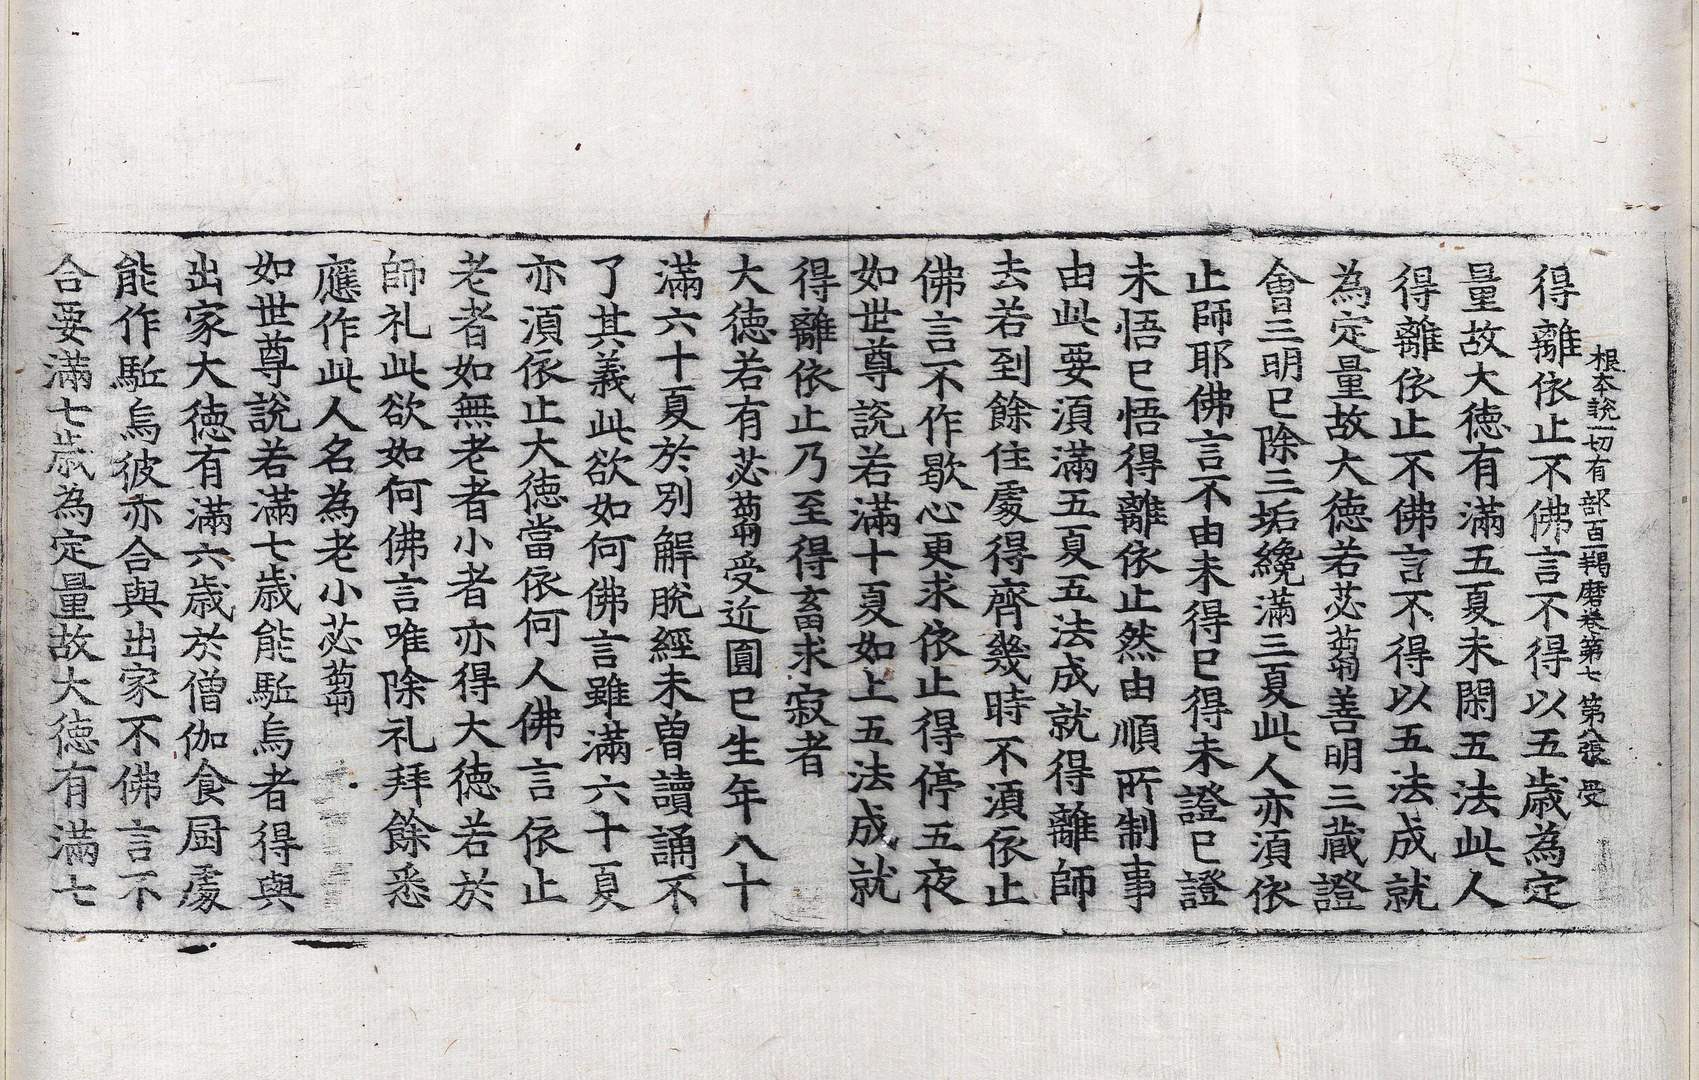 根本説一切有部百一羯磨卷第七 第八張 受
得離依止不佛言不得以五歲為定
量故大徳有滿五夏未閑五法此人
得離依止不佛言不得以五法成就
為定量故大徳若苾蒭善明三藏證
會三明已除三垢纔滿三夏此人亦湏依
止師耶佛言不由未得已得未證已證
未悟已悟得離依止然由順所制事
由此要湏滿五夏五法成就得離師
去若到餘住處得齊幾時不湏依止
佛言不作歇心更求依止得停五夜
如世尊說若滿十夏如上五法成就
得離依止乃至得畜求寂者
大徳若有苾蒭受近圓已生年八十
滿六十夏於別解脫經未曾讀誦不
了其義此欲如何佛言雖滿六十夏
亦湏依止大徳當依何人佛言依止
老者如無老者小者亦得大徳若於
師礼此欲如何佛言唯除礼拜餘悉
應作此人名為老小苾蒭
如世尊說若滿七歲能駈烏者得與
出家大徳有滿六歲於僧伽食厨處
能作駈烏彼亦合與出家不佛言不
合要滿七歲為定量故大徳有滿七